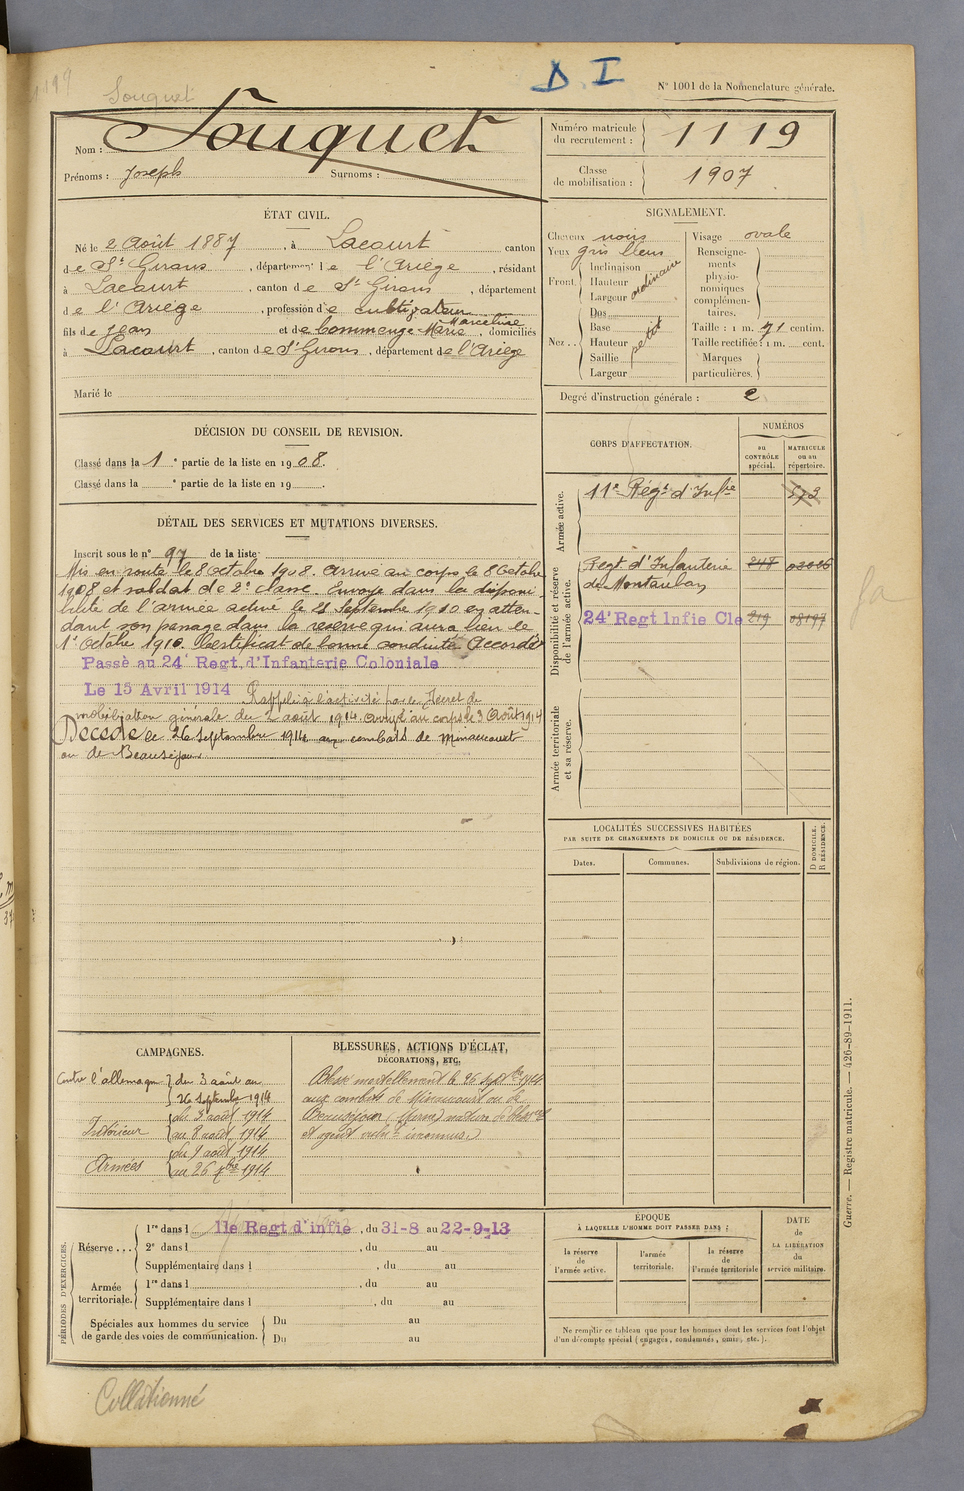 1119
Souquet
D I
N° 1001 de la Nomenclature générale.
Nom : Souquet
Prénoms : Joseph Surnoms :
Numéro matricule du recrutement : 1119
Classe de mobilisation : 1907
ÉTAT CIVIL.
Né le 2 Août 1887, à Lacourt canton
de St Girons, département de l'Ariège, résidant
à Lacourt, canton de St Girons, département
de l'Ariège, profession de cultivateur
fils de Jean et de Commenge Marie Marceline, domiciliés
à Lacourt, canton de St Girons, département de l'Ariège
Marié le
SIGNALEMENT.
Cheveux noirs
Yeux gris bleus
Front. Inclinaison Hauteur Largeur ordinaire
Nez.. Dos Base Hauteur Saillie Largeur petit
Visage ovale
Renseignements physionomiques complémentaires.
Taille : 1 m. 71 centim.
Taille rectifiée : 1 m. cent.
Marques particulières.
Degré d'instruction générale : 2
DÉCISION DU CONSEIL DE REVISION.
Classé dans la 1e partie de la liste en 1908.
Classé dans la e partie de la liste en 19 .
CORPS D'AFFECTATION.
NUMÉROS
au CONTRÔLE spécial.
MATRICULE ou au répertoire.
Armée active.
11e Régt d'Infie 573
Disponibilité et réserve de l'armée active.
Régt d'Infanterie 248
de Montauban
24e Regt Infie Cle 219
Armée territoriale et sa réserve.
DÉTAIL DES SERVICES ET MUTATIONS DIVERSES.
Inscrit sous le n° 97 de la liste
Mis en route le 8 Octobre 1908. Arrivé au corps le 8 Octobre
1908 et soldat de 2e classe. Envoyé dans la disponi-
bilité de l'armée active le 21 Septembre 1910 en atten-
dant son passage dans la réserve qui aura lieu le
1er Octobre 1910. Certificat de bonne conduite Accordé
Passé au 24e Regt. d'Infanterie Coloniale
Le 15 Avril 1914 Rappelé à l'activité par le Décret de
mobilisation générale du 2 août 1914. Arrivé au corps le 3 Août 1914
Décédé le 26 Septembre 1914 aux combats de Minaucourt
ou de Beauséjour
LOCALITÉS SUCCESSIVES HABITÉES
PAR SUITE DE CHANGEMENTS DE DOMICILE OU DE RÉSIDENCE.
Dates. Communes. Subdivisions de région. D DOMICILE. R RÉSIDENCE.
CAMPAGNES.
Contre l'allemagne du 3 août au
26 Septembre 1914
Intérieur du 3 août 1914
au 8 août 1914
Armées du 9 août 1914
au 26 7bre 1914
BLESSURES, ACTIONS D'ÉCLAT,
DÉCORATIONS, ETC.
Blessé mortellement le 26 septbre 1914
aux combats de Minaucourt ou de
Beauséjour (Marne) nature de blessures
et agent vulnt inconnus.)
PÉRIODES D'EXERCICES.
Réserve... 1re dans l 11e Regt d'infie, du 31-8 au 22-9-13
2e dans l , du au
Supplémentaire dans l , du au
Armée territoriale. 1re dans l , du au
Supplémentaire dans l , du au
Spéciales aux hommes du service de garde des voies de communication. Du au
Du au
ÉPOQUE
À LAQUELLE L'HOMME DOIT PASSER DANS :
la réserve de l'armée active.
l'armée territoriale.
la réserve de l'armée territoriale
DATE de LA LIBÉRATION du service militaire.
Ne remplir ce tableau que pour les hommes dont les services font l'objet
d'un décompte spécial (engagés, condamnés, omis, etc.).
Guerre. — Registre matricule. — 426-89-1911.
Collationné